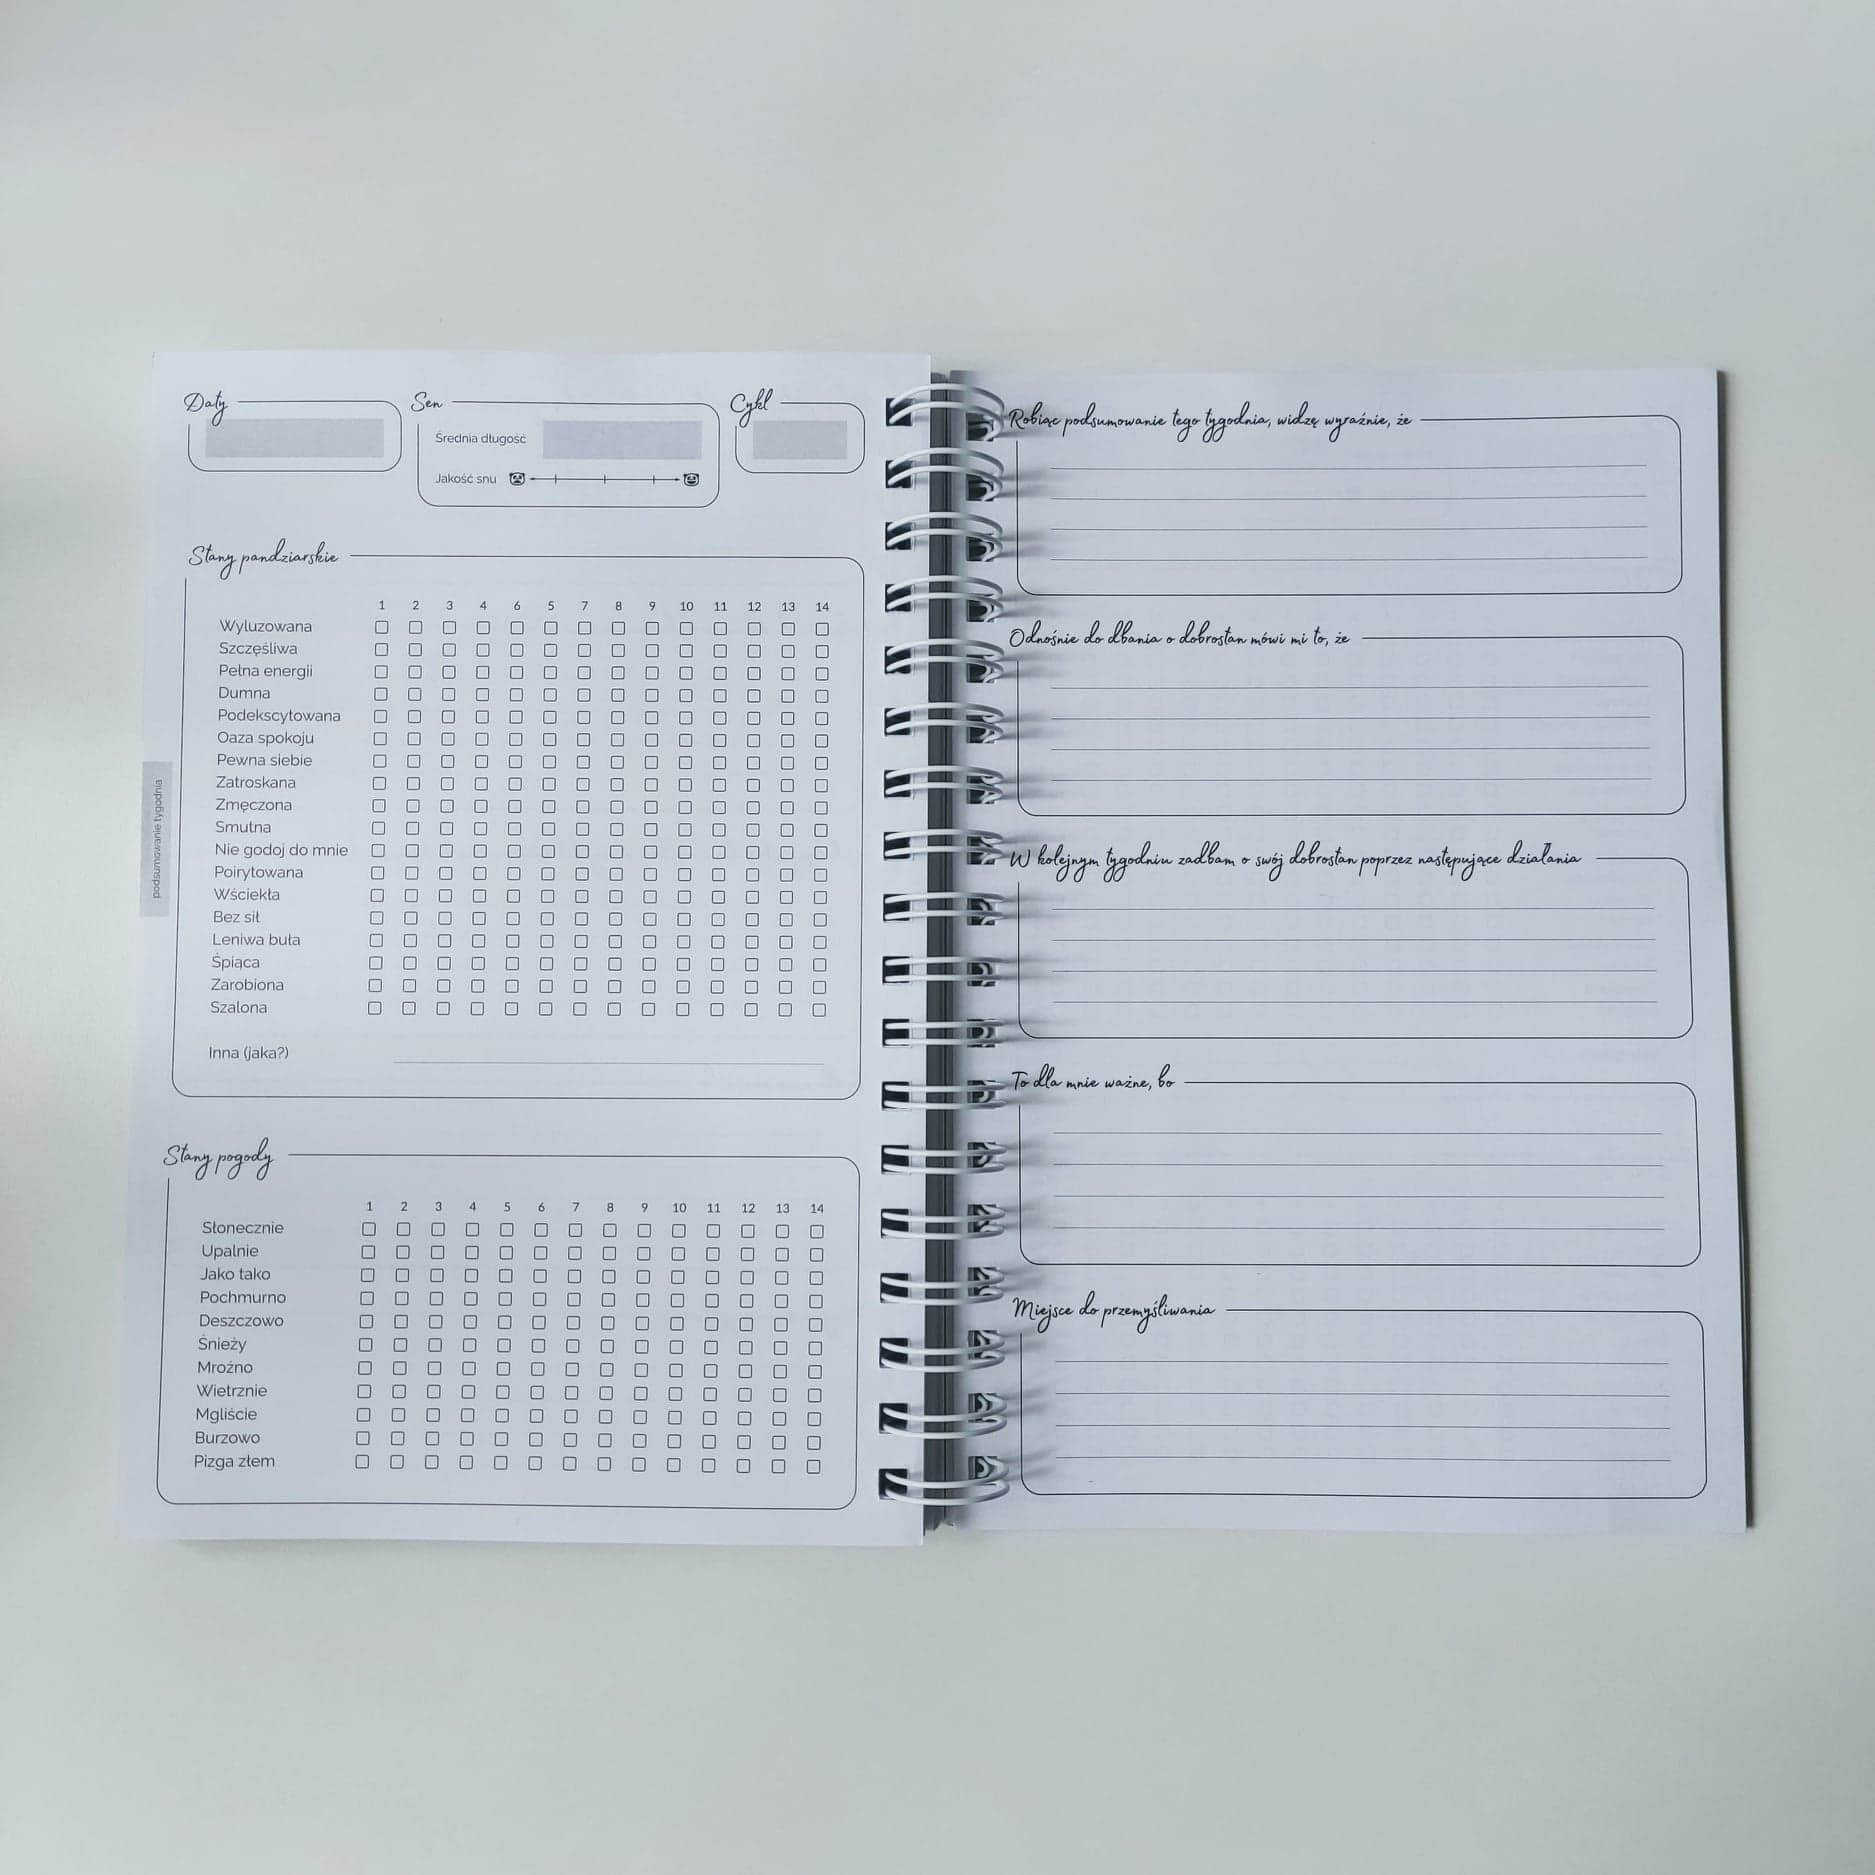 Daty
Sen
Cykl
Średnia długość
Jakość snu
Stany pandziarskie
1 2 3 4 6 5 7 8 9 10 11 12 13 14
Wyluzowana
Szczęśliwa
Pełna energii
Dumna
Podekscytowana
Oaza spokoju
Pewna siebie
Zatroskana
Zmęczona
Smutna
Nie godoj do mnie
Poirytowana
Wściekła
Bez sił
Leniwa buła
Śpiąca
Zarobiona
Szalona
Inna (jaka?)
podsumowanie tygodnia
Stany pogody
1 2 3 4 5 6 7 8 9 10 11 12 13 14
Słonecznie
Upalnie
Jako tako
Pochmurno
Deszczowo
Śnieży
Mroźno
Wietrznie
Mgliście
Burzowo
Pizga złem
Robiąc podsumowanie tego tygodnia, widzę wyraźnie, że
Odnośnie do dbania o dobrostan mówi mi to, że
W kolejnym tygodniu zadbam o swój dobrostan poprzez następujące działania
To dla mnie ważne, bo
Miejsce do przemyśliwania